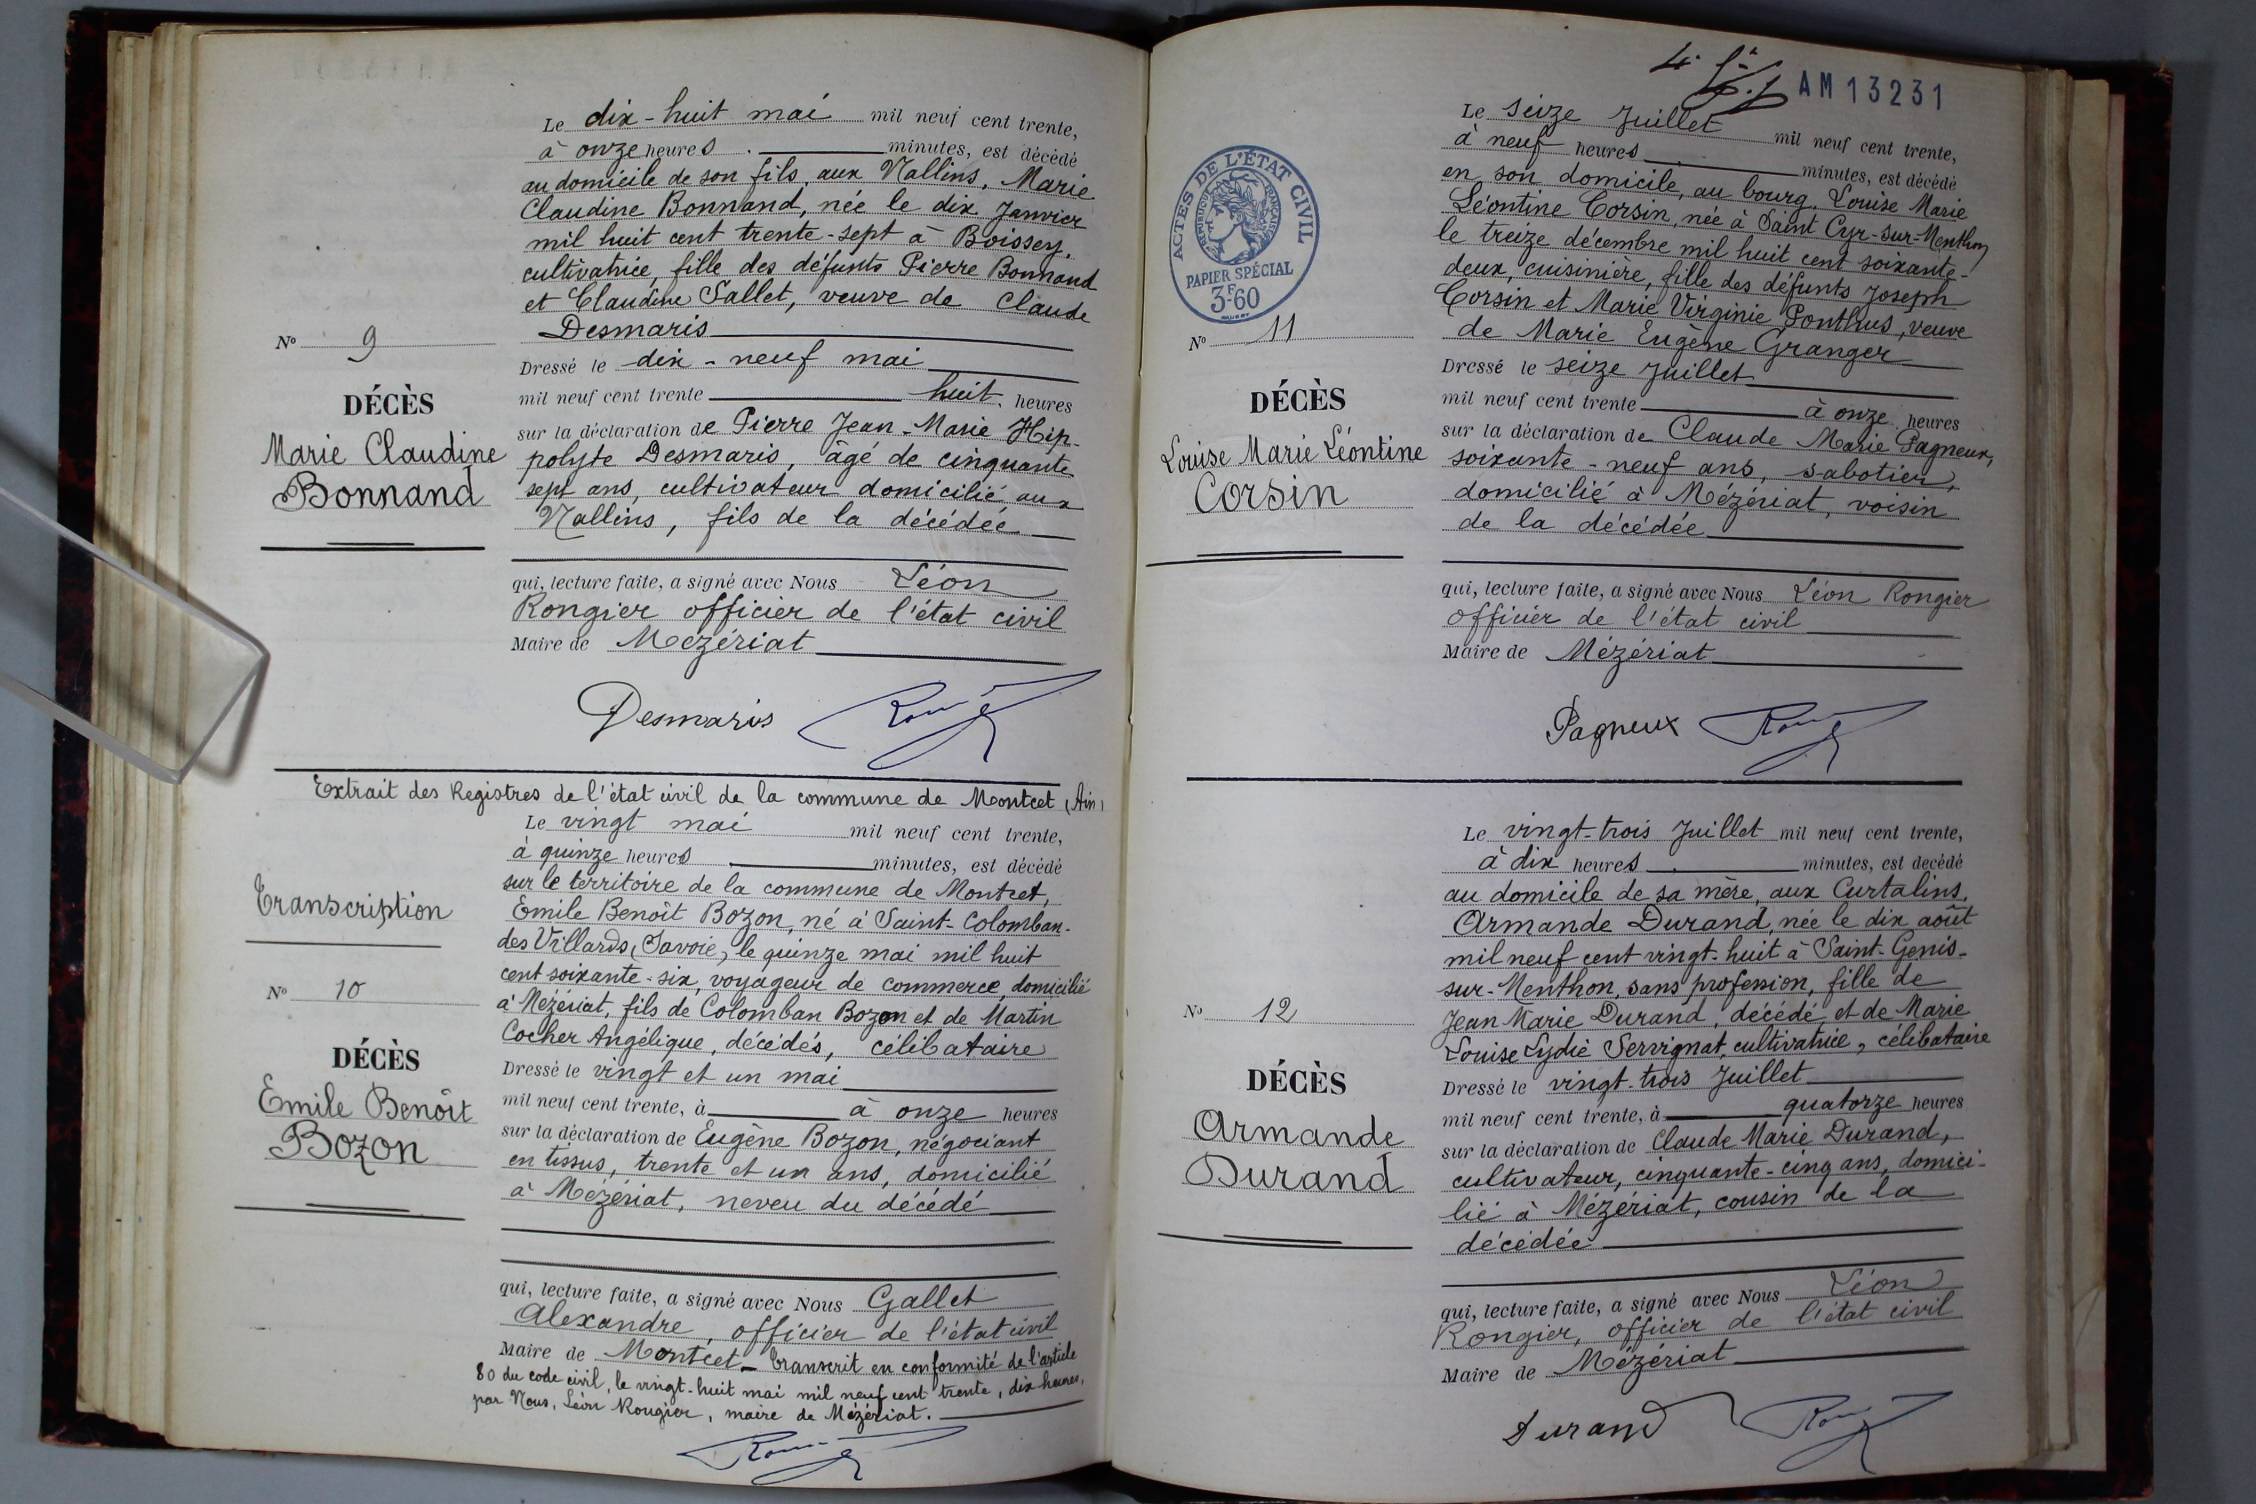 Le dix-huit mai mil neuf cent trente,
à onze heures . minutes, est décédé
au domicile de son fils, aux Nallins, Marie
Claudine Bonnand, née le dix Janvier
mil huit cent trente-sept à Boissey,
cultivatrice, fille des défunts Pierre Bonnand
et Claudine Sallet, veuve de Claude
Desmaris
Nº 9
Dressé le dix-neuf mai
mil neuf cent trente huit heures
DÉCÈS
sur la déclaration de Pierre Jean-Marie Hip-
Marie Claudine
polyte Desmaris, âgé de cinquante
Bonnand
sept ans, cultivateur domicilié aux
Nallins, fils de la décédée
qui, lecture faite, a signé avec Nous Léon
Rongier officier de l'état civil
Maire de Mézériat
Desmaris
Extrait des Registres de l'état civil de la commune de Montcet (Ain)
Le vingt mai mil neuf cent trente,
à quinze heures . minutes, est décédé
sur le territoire de la commune de Montcet,
Transcription
Emile Benoît Bozon, né à Saint-Colomban-
des Villards (Savoie), le quinze mai mil huit
cent soixante-six, voyageur de commerce, domicilié
Nº 10
à Mézériat, fils de Colomban Bozon et de Martin
Cocher Angélique, décédés, célibataire
DÉCÈS
Dressé le vingt et un mai
Emile Benoît
mil neuf cent trente, à à onze heures
Bozon
sur la déclaration de Eugène Bozon, négociant
en tissus, trente et un ans, domicilié
à Mézériat, neveu du décédé
qui, lecture faite, a signé avec Nous Gallet
Alexandre, officier de l'état civil
Maire de Montcet_ transcrit en conformité de l'article
80 du code civil, le vingt-huit mai mil neuf cent trente, dix heures,
par Nous, Léon Rongier, maire de Mézériat.
AM13231
ACTES DE L'ÉTAT CIVIL
RÉPUBLIQUE FRANÇAISE
PAPIER SPÉCIAL
3F60
Le seize Juillet mil neuf cent trente,
à neuf heures . minutes, est décédé
en son domicile, au bourg, Louise Marie
Léontine Corsin, née à Saint Cyr-sur-Menthon
le treize décembre mil huit cent soixante-
deux, cuisinière, fille des défunts Joseph
Corsin et Marie Virginie Ponthus, veuve
de Marie Eugène Granger
Nº 11
Dressé le seize Juillet
mil neuf cent trente à onze heures
DÉCÈS
sur la déclaration de Claude Marie Pagneux,
Louise Marie Léontine
soixante-neuf ans, sabotier,
Corsin
domicilié à Mézériat, voisin
de la décédée
qui, lecture faite, a signé avec Nous Léon Rongier
officier de l'état civil
Maire de Mézériat
Pagneux
Le vingt-trois Juillet mil neuf cent trente,
à dix heures . minutes, est decédé
au domicile de sa mère, aux Curtalins,
Armande Durand, née le dix août
mil neuf cent vingt-huit à Saint-Genis-
sur-Menthon, sans profession, fille de
Nº 12
Jean Marie Durand, décédé et de Marie
Louise Lydie Servignat, cultivatrice, célibataire
DÉCÈS
Dressé le vingt-trois Juillet
mil neuf cent trente, à quatorze heures
Armande
sur la déclaration de Claude Marie Durand,
Durand
cultivateur, cinquante-cinq ans, domici-
lié à Mézériat, cousin de la
décédée
qui, lecture faite, a signé avec Nous Léon
Rongier, officier de l'état civil
Maire de Mézériat
Durand